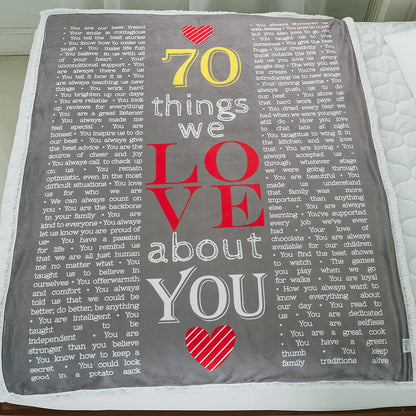 • You are our best friend •
Your smile is contagious
• You tell the best stories
• You know how to make us
laugh • You make life fun
• You believe in us with all
of your heart • Your
unconditional support • You
are always there for us
• You tell it how it is • You
are always teaching us new
things • You work hard
You brighten up our days
• You are reliable • You look
up reviews for everything
• You are a great listener
• You always made me
feel special • You are
honest • You inspire us to do
our best • You always give
the best advice • You are the
source of cheer and joy
• You always call to check up
on us • You remain
optimistic, even in the most
difficult situations • You love
us for who we are
• We can always count on
you • You are the backbone
to your family • You are
kind to everyone • You always
let us know you are proud of
us • You have a passion
for life • You remind us
that we are all just human
me no matter what • You
taught us to believe in
ourselves • You offer warmth
and comfort • You always
told us that we could be
better, do better, be anything
• You are intelligent • You
taught us to be
independent • You are
stronger than you believe
• You know how to keep a
secret • You could look
good in a potato sack
70
things
we
LO
VE
about
YOU
• You always
us • You love to
but you also love to
• You taught us to
ourselves • You give
hugs • Your creativity
• You think outside
tell us you love us every
single day • The way you see
us love is great • You're
introducing us to new songs
• Your driving lessons • You
always push us to do
our best • You show us
that hard work pays off
• You dried every tear we
had when we were younger
still do • How you love
to chat late at night
• You taught us to wing it in
the kitchen and we love
that • You are loving • You
always accepted us
through whatever stage
we were going through
• You are beautiful • You
made us understand
that family was more
important than anything
else • You are always
learning • You've supported
every job we've ever
had • Your love of
chocolate • You are always
available for our children
• You find the best shows
to watch • The games
you play when we go
for walks • You are loyal
• How you always want to
know everything about
our day • You read to
us • You are dedicated
• You are selfless
• You are a great cook
• You have a green
thumb • You keep
family traditions alive